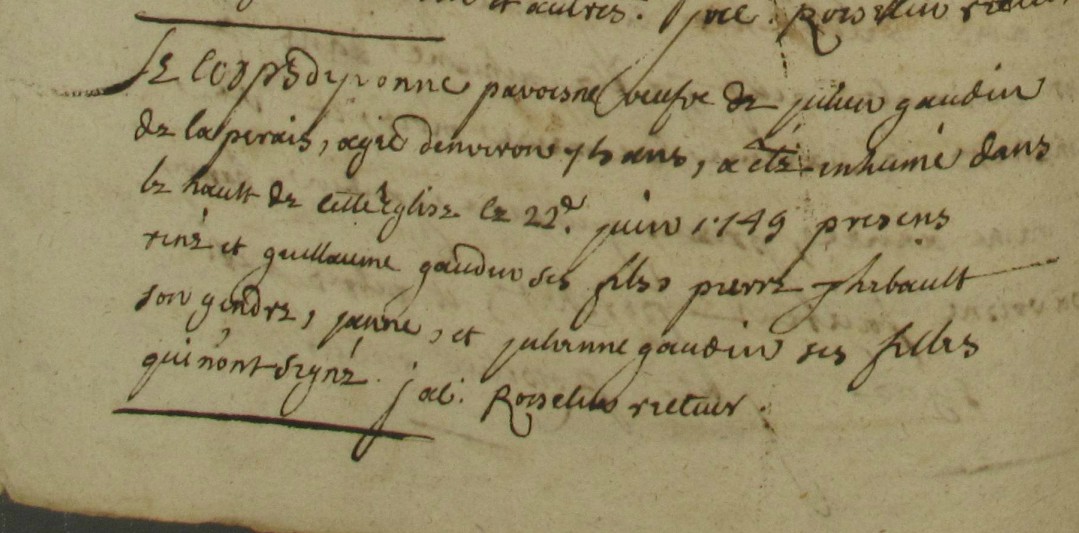 et autres. jac. Roiselin recteur
Le corps d'yvonne pavoisne veufve de julien gaudin
de la perais, agié d'environ 75 ans, a été inhumé dans
le hault de cette Eglise le 22e. juin 1749 presens
rené et guillaume gaudin ses fils, pierre thébault
son gendre, janne, et julienne gaudin ses filles
qui n'ont signé. jac. Roiselin recteur.